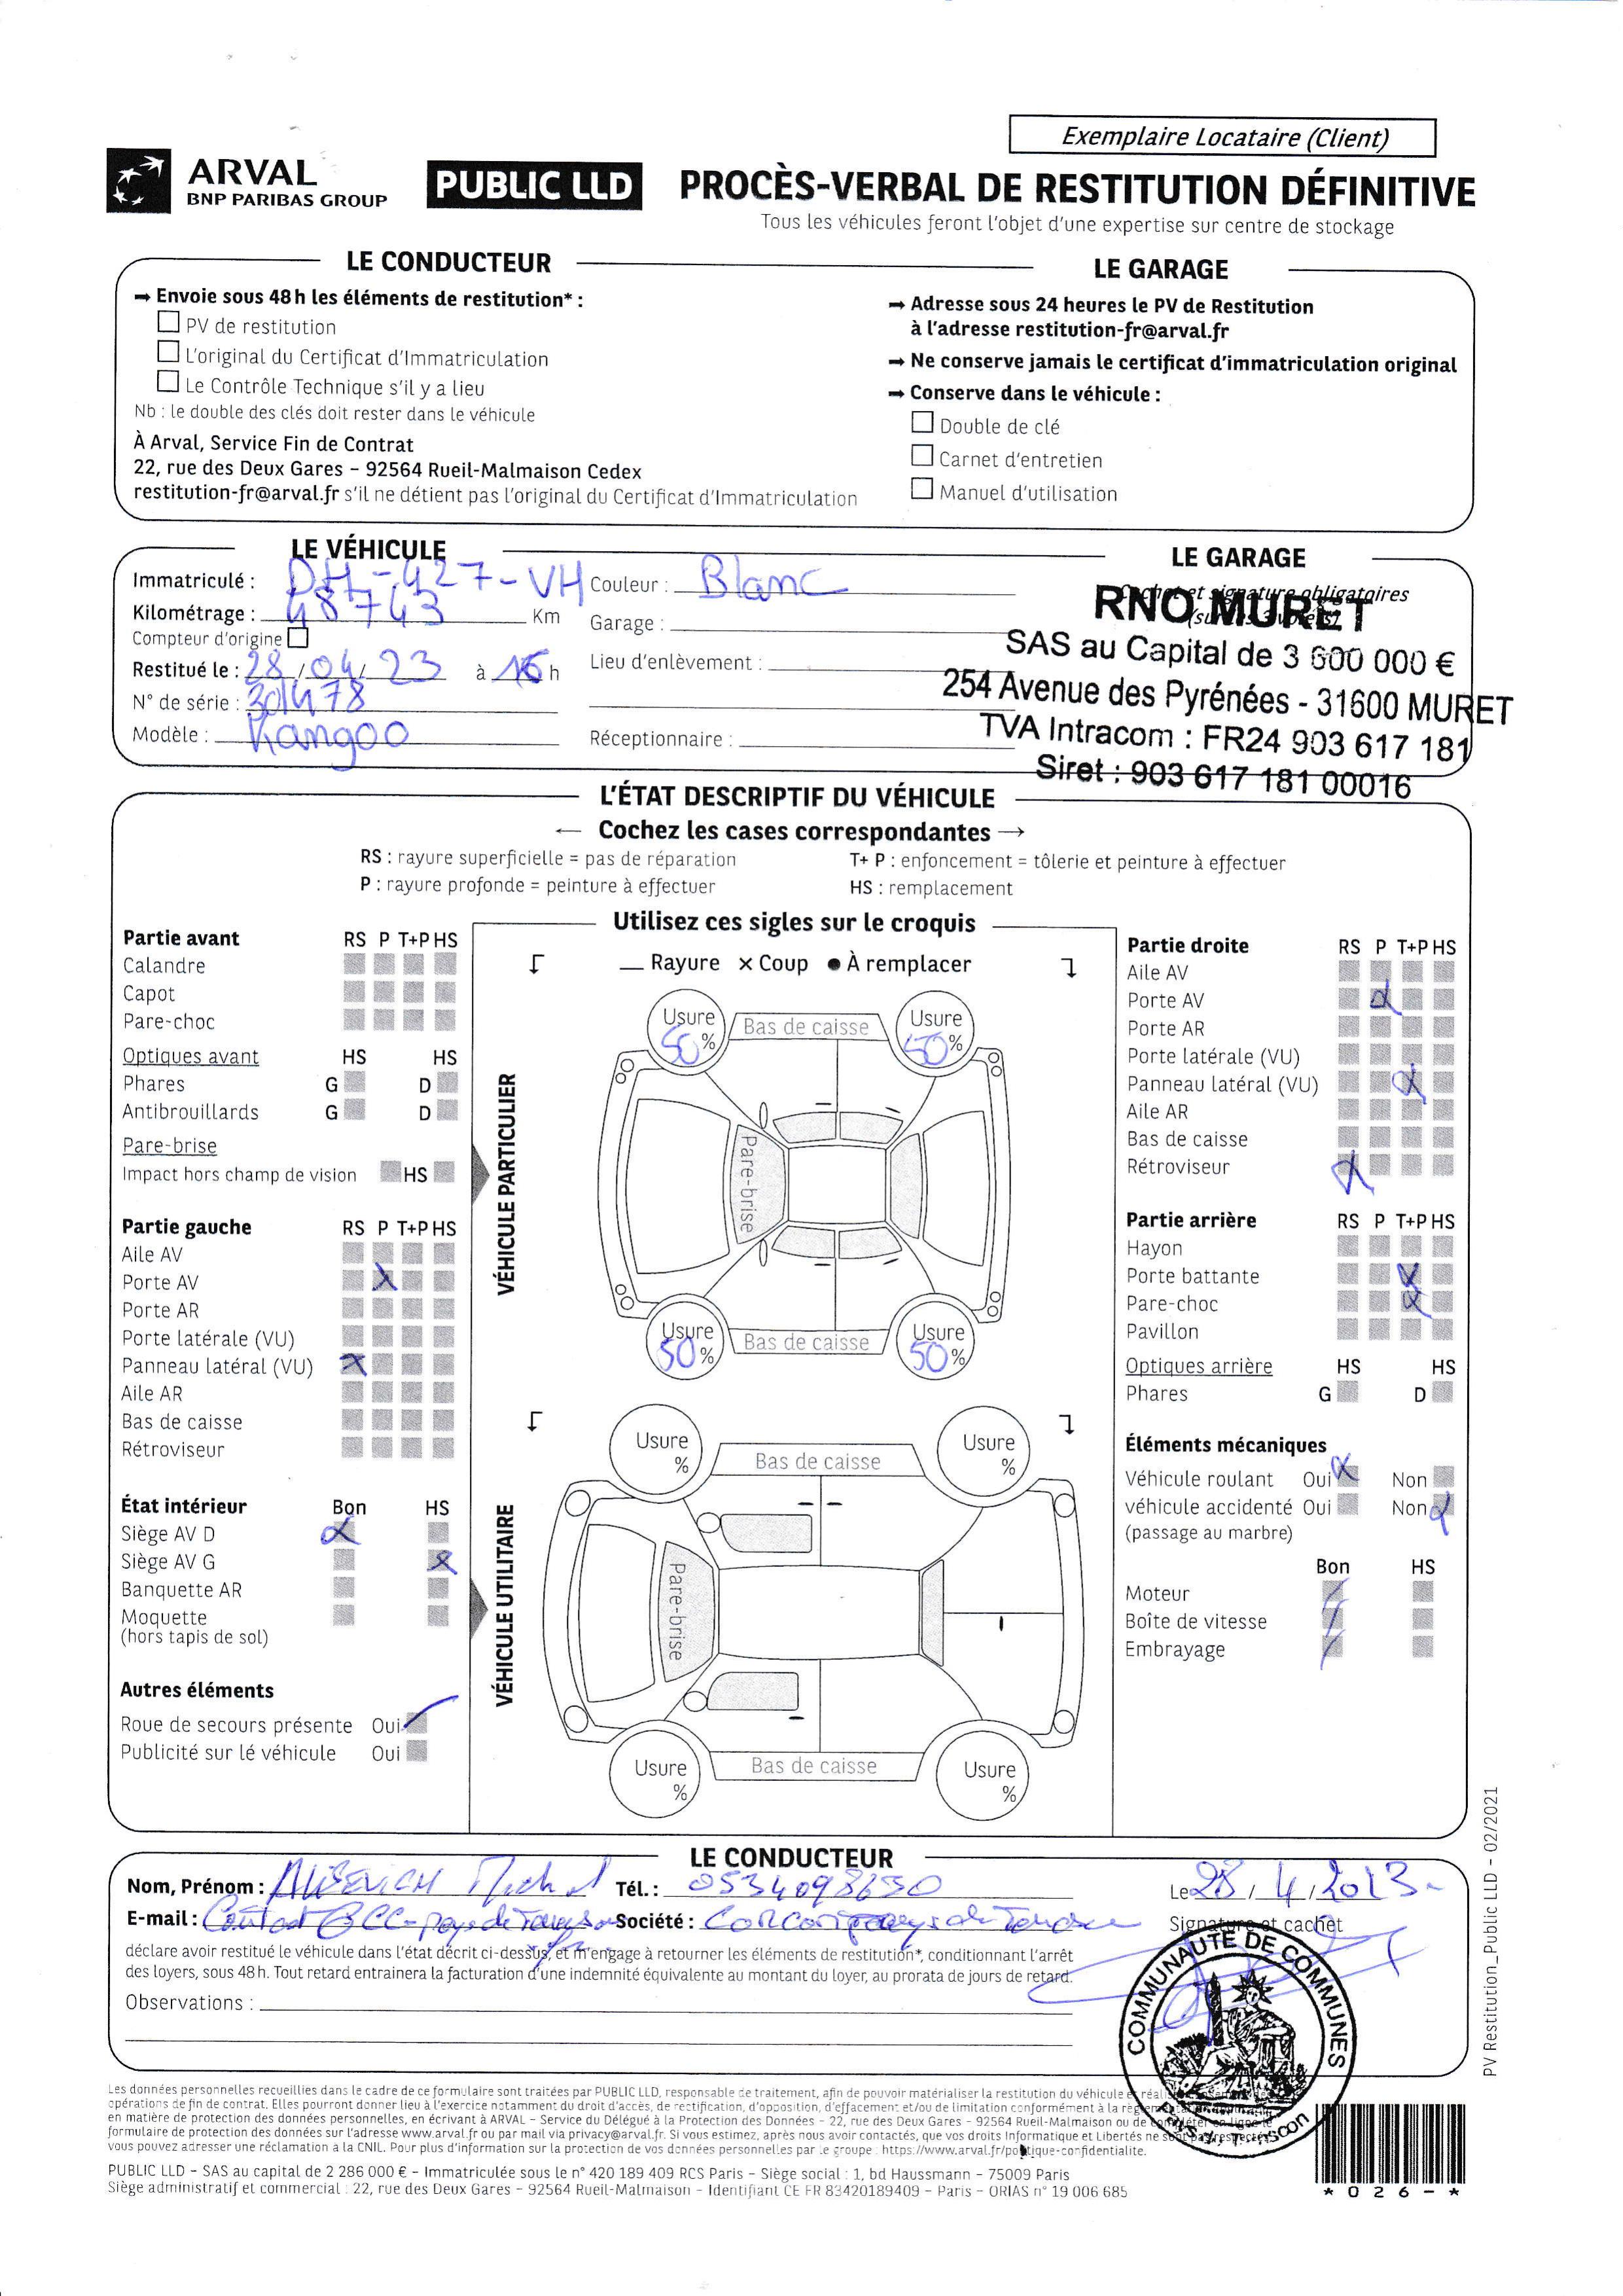 Exemplaire Locataire (Client)
ARVAL
BNP PARIBAS GROUP
PUBLIC LLD
PROCÈS-VERBAL DE RESTITUTION DÉFINITIVE
Tous les véhicules feront l'objet d'une expertise sur centre de stockage
LE CONDUCTEUR
→ Envoie sous 48h les éléments de restitution* :
PV de restitution
L'original du Certificat d'Immatriculation
Le Contrôle Technique s'il y a lieu
Nb : le double des clés doit rester dans le véhicule
À Arval, Service Fin de Contrat
22, rue des Deux Gares – 92564 Rueil-Malmaison Cedex
restitution-fr@arval.fr s'il ne détient pas l'original du Certificat d'Immatriculation
LE GARAGE
→ Adresse sous 24 heures le PV de Restitution
à l'adresse restitution-fr@arval.fr
→ Ne conserve jamais le certificat d'immatriculation original
→ Conserve dans le véhicule :
Double de clé
Carnet d'entretien
Manuel d'utilisation
LE VÉHICULE
Immatriculé : DH-427-VH
Kilométrage : 48743 Km
Compteur d'origine
Restitué le : 28/04/23 à 16 h
N° de série : 301478
Modèle : Kangoo
Couleur : Blanc
Garage :
Lieu d'enlèvement :
Réceptionnaire :
LE GARAGE
Cachet et signature obligatoires
RNO MURET
SAS au Capital de 3 600 000 €
254 Avenue des Pyrénées - 31600 MURET
TVA Intracom : FR24 903 617 181
Siret : 903 617 181 00016
L'ÉTAT DESCRIPTIF DU VÉHICULE
← Cochez les cases correspondantes →
RS : rayure superficielle = pas de réparation
T+ P : enfoncement = tôlerie et peinture à effectuer
P : rayure profonde = peinture à effectuer
HS : remplacement
Utilisez ces sigles sur le croquis
— Rayure × Coup ● À remplacer
Partie avant RS P T+P HS
Calandre
Capot
Pare-choc
Optiques avant HS HS
Phares G D
Antibrouillards G D
Pare-brise
Impact hors champ de vision HS
Partie gauche RS P T+P HS
Aile AV
Porte AV
Porte AR
Porte latérale (VU)
Panneau latéral (VU)
Aile AR
Bas de caisse
Rétroviseur
État intérieur Bon HS
Siège AV D
Siège AV G
Banquette AR
Moquette
(hors tapis de sol)
Autres éléments
Roue de secours présente Oui
Publicité sur lé véhicule Oui
VÉHICULE PARTICULIER
Usure 50 %
Bas de caisse
Usure 50 %
Pare-brise
Usure 50 %
Bas de caisse
Usure 50 %
VÉHICULE UTILITAIRE
Usure %
Bas de caisse
Usure %
Pare-brise
Usure %
Bas de caisse
Usure %
Partie droite RS P T+P HS
Aile AV
Porte AV
Porte AR
Porte latérale (VU)
Panneau latéral (VU)
Aile AR
Bas de caisse
Rétroviseur
Partie arrière RS P T+P HS
Hayon
Porte battante
Pare-choc
Pavillon
Optiques arrière HS HS
Phares G D
Éléments mécaniques
Véhicule roulant Oui Non
véhicule accidenté Oui Non
(passage au marbre)
Bon HS
Moteur
Boîte de vitesse
Embrayage
LE CONDUCTEUR
Nom, Prénom :
Tél. : 0534098630
Le 28/4/2013
E-mail :
Société :
Signature et cachet
déclare avoir restitué le véhicule dans l'état décrit ci-dessus, et m'engage à retourner les éléments de restitution*, conditionnant l'arrêt
des loyers, sous 48h. Tout retard entrainera la facturation d'une indemnité équivalente au montant du loyer, au prorata de jours de retard.
Observations :
COMMUNAUTE DE COMMUNES
Les données personnelles recueillies dans le cadre de ce formulaire sont traitées par PUBLIC LLD, responsable de traitement, afin de pouvoir matérialiser la restitution du véhicule et
opérations de fin de contrat. Elles pourront donner lieu à l'exercice notamment du droit d'accès, de rectification, d'opposition, d'effacement et/ou de limitation conformément à la
en matière de protection des données personnelles, en écrivant à ARVAL – Service du Délégué à la Protection des Données – 22, rue des Deux Gares – 92564 Rueil-Malmaison ou de
formulaire de protection des données sur l'adresse www.arval.fr ou par mail via privacy@arval.fr. Si vous estimez, après nous avoir contactés, que vos droits Informatique et Libertés ne sont pas respectés,
vous pouvez adresser une réclamation à la CNIL. Pour plus d'information sur la protection de vos données personnelles par le groupe : https://www.arval.fr/politique-confidentialite.
PUBLIC LLD – SAS au capital de 2 286 000 € – Immatriculée sous le n° 420 189 409 RCS Paris – Siège social : 1, bd Haussmann – 75009 Paris
Siège administratif et commercial : 22, rue des Deux Gares – 92564 Rueil-Malmaison – Identifiant CE FR 83420189409 – Paris – ORIAS n° 19 006 685
* 0 2 6 - *
PV Restitution_Public LLD - 02/2021